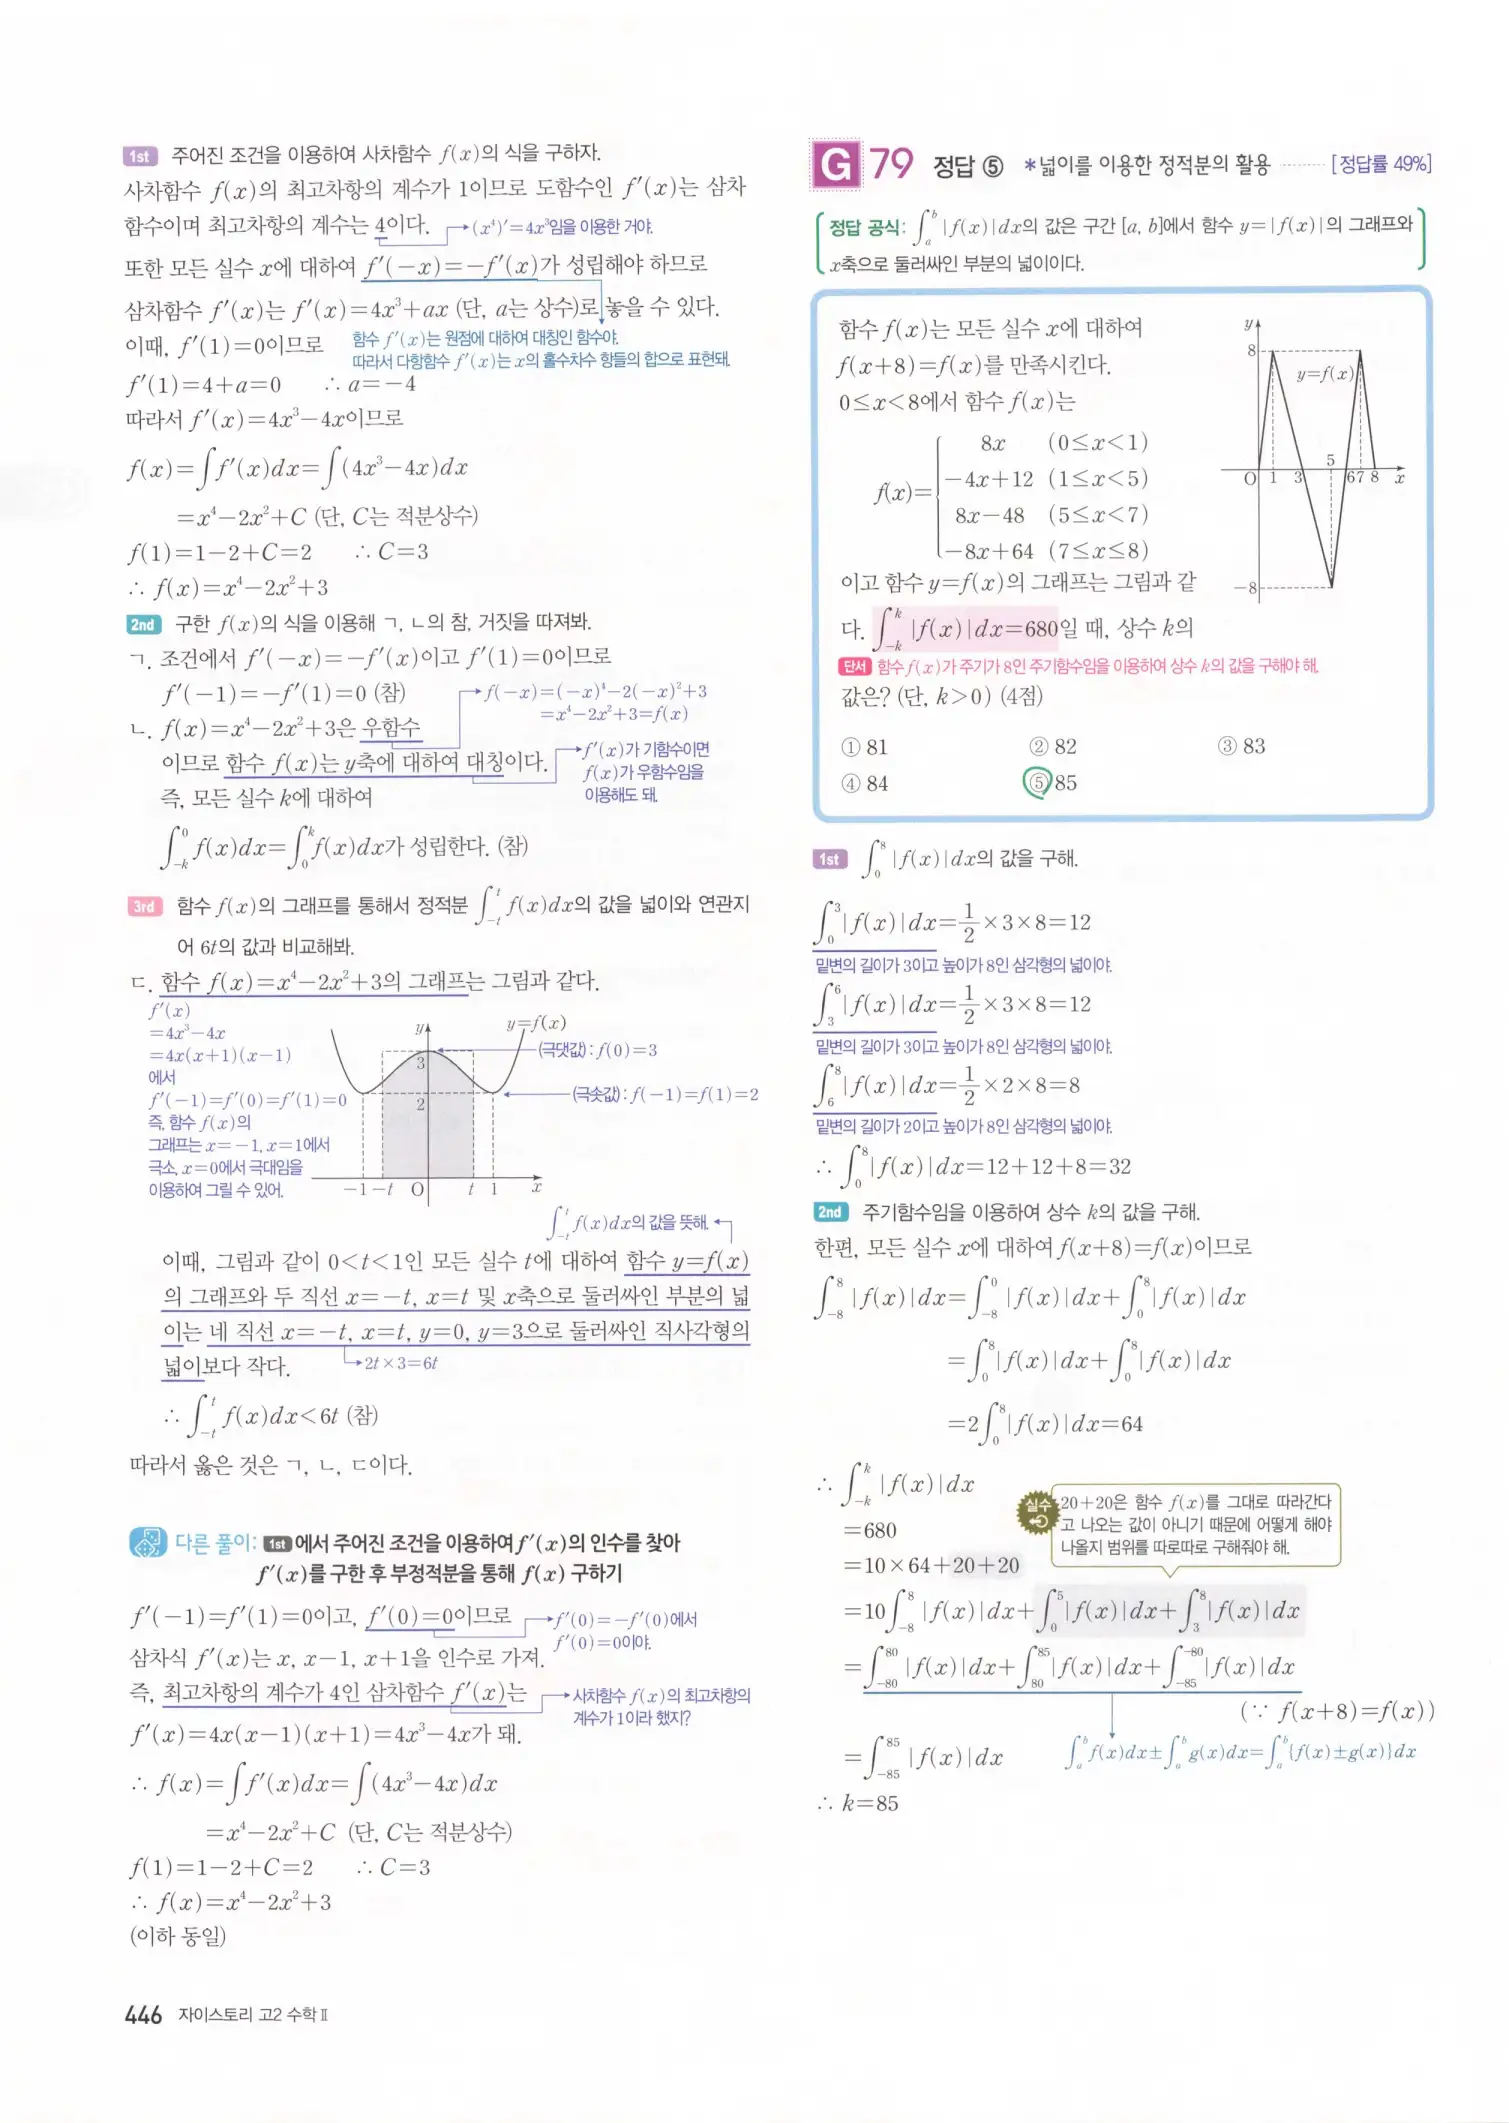 1st 주어진 조건을 이용하여 사차함수 f(x)의 식을 구하자.
사차함수 f(x)의 최고차항의 계수가 1이므로 도함수인 f′(x)는 삼차
함수이며 최고차항의 계수는 4이다. → (x⁴)′=4x³임을 이용한 거야.
또한 모든 실수 x에 대하여 f′(−x)=−f′(x)가 성립해야 하므로
삼차함수 f′(x)는 f′(x)=4x³+ax (단, a는 상수)로 놓을 수 있다.
이때, f′(1)=0이므로
함수 f′(x)는 원점에 대하여 대칭인 함수야.
따라서 다항함수 f′(x)는 x의 홀수차수 항들의 합으로 표현돼.
f′(1)=4+a=0 ∴ a=−4
따라서 f′(x)=4x³−4x이므로
f(x)=∫f′(x)dx=∫(4x³−4x)dx
=x⁴−2x²+C (단, C는 적분상수)
f(1)=1−2+C=2 ∴ C=3
∴ f(x)=x⁴−2x²+3
2nd 구한 f(x)의 식을 이용해 ㄱ, ㄴ의 참, 거짓을 따져봐.
ㄱ. 조건에서 f′(−x)=−f′(x)이고 f′(1)=0이므로
f′(−1)=−f′(1)=0 (참)
→ f(−x)=(−x)⁴−2(−x)²+3
=x⁴−2x²+3=f(x)
ㄴ. f(x)=x⁴−2x²+3은 우함수
이므로 함수 f(x)는 y축에 대하여 대칭이다.
→ f′(x)가 기함수이면
f(x)가 우함수임을
이용해도 돼.
즉, 모든 실수 k에 대하여
∫₋ₖ⁰ f(x)dx=∫₀ᵏ f(x)dx가 성립한다. (참)
3rd 함수 f(x)의 그래프를 통해서 정적분 ∫₋ₜᵗ f(x)dx의 값을 넓이와 연관지
어 6t의 값과 비교해봐.
ㄷ. 함수 f(x)=x⁴−2x²+3의 그래프는 그림과 같다.
f′(x)
=4x³−4x
=4x(x+1)(x−1)
에서
f′(−1)=f′(0)=f′(1)=0
즉, 함수 f(x)의
그래프는 x=−1, x=1에서
극소, x=0에서 극대임을
이용하여 그릴 수 있어.
y
y=f(x)
3
(극댓값) : f(0)=3
2
(극솟값) : f(−1)=f(1)=2
−1 −t O t 1 x
∫₋ₜᵗ f(x)dx의 값을 뜻해.
이때, 그림과 같이 0<t<1인 모든 실수 t에 대하여 함수 y=f(x)
의 그래프와 두 직선 x=−t, x=t 및 x축으로 둘러싸인 부분의 넓
이는 네 직선 x=−t, x=t, y=0, y=3으로 둘러싸인 직사각형의
넓이보다 작다. → 2t×3=6t
∴ ∫₋ₜᵗ f(x)dx<6t (참)
따라서 옳은 것은 ㄱ, ㄴ, ㄷ이다.
다른 풀이: 1st에서 주어진 조건을 이용하여 f′(x)의 인수를 찾아
f′(x)를 구한 후 부정적분을 통해 f(x) 구하기
f′(−1)=f′(1)=0이고, f′(0)=0이므로
→ f′(0)=−f′(0)에서
f′(0)=0이야.
삼차식 f′(x)는 x, x−1, x+1을 인수로 가져.
즉, 최고차항의 계수가 4인 삼차함수 f′(x)는
→ 사차함수 f(x)의 최고차항의
계수가 1이라 했지?
f′(x)=4x(x−1)(x+1)=4x³−4x가 돼.
∴ f(x)=∫f′(x)dx=∫(4x³−4x)dx
=x⁴−2x²+C (단, C는 적분상수)
f(1)=1−2+C=2 ∴ C=3
∴ f(x)=x⁴−2x²+3
(이하 동일)
446 자이스토리 고2 수학Ⅱ
G 79 정답 ⑤ *넓이를 이용한 정적분의 활용 ········ [정답률 49%]
정답 공식: ∫ₐᵇ |f(x)|dx의 값은 구간 [a, b]에서 함수 y=|f(x)|의 그래프와
x축으로 둘러싸인 부분의 넓이이다.
함수 f(x)는 모든 실수 x에 대하여
f(x+8)=f(x)를 만족시킨다.
0≤x<8에서 함수 f(x)는
f(x)=
8x (0≤x<1)
−4x+12 (1≤x<5)
8x−48 (5≤x<7)
−8x+64 (7≤x≤8)
y
8
y=f(x)
5
O 1 3 6 7 8 x
−8
이고 함수 y=f(x)의 그래프는 그림과 같
다. ∫₋ₖᵏ |f(x)|dx=680일 때, 상수 k의
단서 함수 f(x)가 주기가 8인 주기함수임을 이용하여 상수 k의 값을 구해야 해.
값은? (단, k>0) (4점)
① 81 ② 82 ③ 83
④ 84 ⑤ 85
1st ∫₀⁸ |f(x)|dx의 값을 구해.
∫₀³ |f(x)|dx=1/2×3×8=12
밑변의 길이가 3이고 높이가 8인 삼각형의 넓이야.
∫₃⁶ |f(x)|dx=1/2×3×8=12
밑변의 길이가 3이고 높이가 8인 삼각형의 넓이야.
∫₆⁸ |f(x)|dx=1/2×2×8=8
밑변의 길이가 2이고 높이가 8인 삼각형의 넓이야.
∴ ∫₀⁸ |f(x)|dx=12+12+8=32
2nd 주기함수임을 이용하여 상수 k의 값을 구해.
한편, 모든 실수 x에 대하여 f(x+8)=f(x)이므로
∫₋₈⁸ |f(x)|dx=∫₋₈⁰ |f(x)|dx+∫₀⁸ |f(x)|dx
=∫₀⁸ |f(x)|dx+∫₀⁸ |f(x)|dx
=2∫₀⁸ |f(x)|dx=64
∴ ∫₋ₖᵏ |f(x)|dx
=680
=10×64+20+20
실수 20+20은 함수 f(x)를 그대로 따라간다
고 나오는 값이 아니기 때문에 어떻게 해야
나올지 범위를 따로따로 구해줘야 해.
=10∫₋₈⁸ |f(x)|dx+∫₀⁵ |f(x)|dx+∫₃⁸ |f(x)|dx
=∫₋₈₀⁸⁰ |f(x)|dx+∫₈₀⁸⁵ |f(x)|dx+∫₋₈₅⁻⁸⁰ |f(x)|dx
(∵ f(x+8)=f(x))
=∫₋₈₅⁸⁵ |f(x)|dx
∫ₐᵇ f(x)dx±∫ₐᵇ g(x)dx=∫ₐᵇ {f(x)±g(x)}dx
∴ k=85